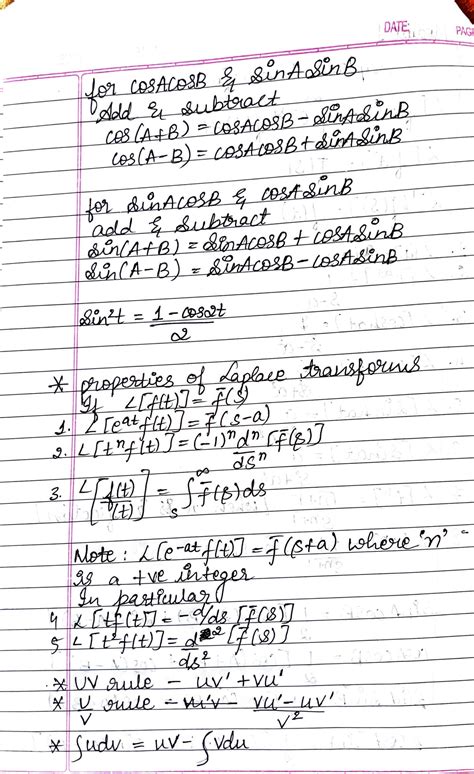 DATE:
PAGE
for cosAcosB & sinAsinB
Add & subtract
cos(A+B) = cosAcosB - sinAsinB
cos(A-B) = cosAcosB + sinAsinB
for sinAcosB & cosAsinB
add & subtract
sin(A+B) = sinAcosB + cosAsinB
sin(A-B) = sinAcosB - cosAsinB
sin²t = 1-cos2t
2
* properties of Laplace transforms
If L[f(t)] = f̄(s)
1. L[eᵃᵗf(t)] = f̄(s-a)
2. L[tⁿf(t)] = (-1)ⁿ dⁿ/dsⁿ [f̄(s)]
3. L[f(t)/(t)] = ∫ₛ^∞ f̄(s)ds
Note: L[e⁻ᵃᵗf(t)] = f̄(s+a) where 'n'
is a +ve integer
In particular
4 L[tf(t)] = -d/ds [f̄(s)]
5 L[t²f(t)] = d²/ds² [f̄(s)]
* UV rule - uv' + vu'
* U/V rule - vu' - uv' / v²
* ∫udv = uv - ∫vdu